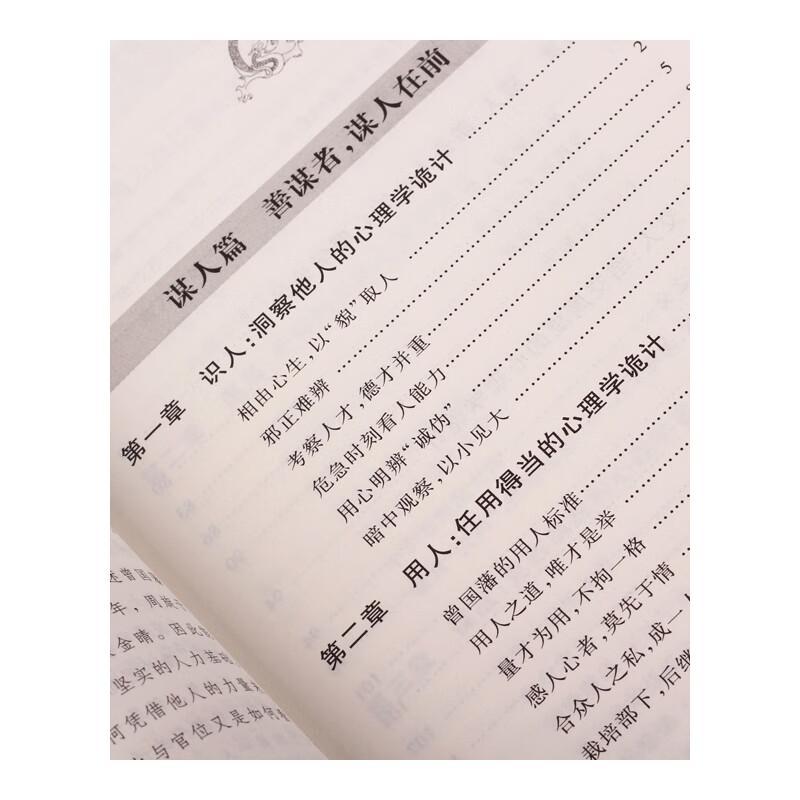 谋人篇 善谋者，谋人在前
第一章 识人：洞察他人的心理学诡计
相由心生，以“貌”取人 …… 2
邪正难辨 …… 5
考察人才，德才并重 ……
危急时刻看人能力 ……
用心明辨“诚伪” ……
暗中观察，以小见大 ……
第二章 用人：任用得当的心理学诡计
曾国藩的用人标准 ……
用人之道，唯才是举 ……
量才为用，不拘一格 ……
感人心者，莫先于情
合众人之私，成一
栽培部下，后继
述曾国
年，周旋
金睛。因此
坚实的人力基
何凭借他人的力量
与官位又是如何